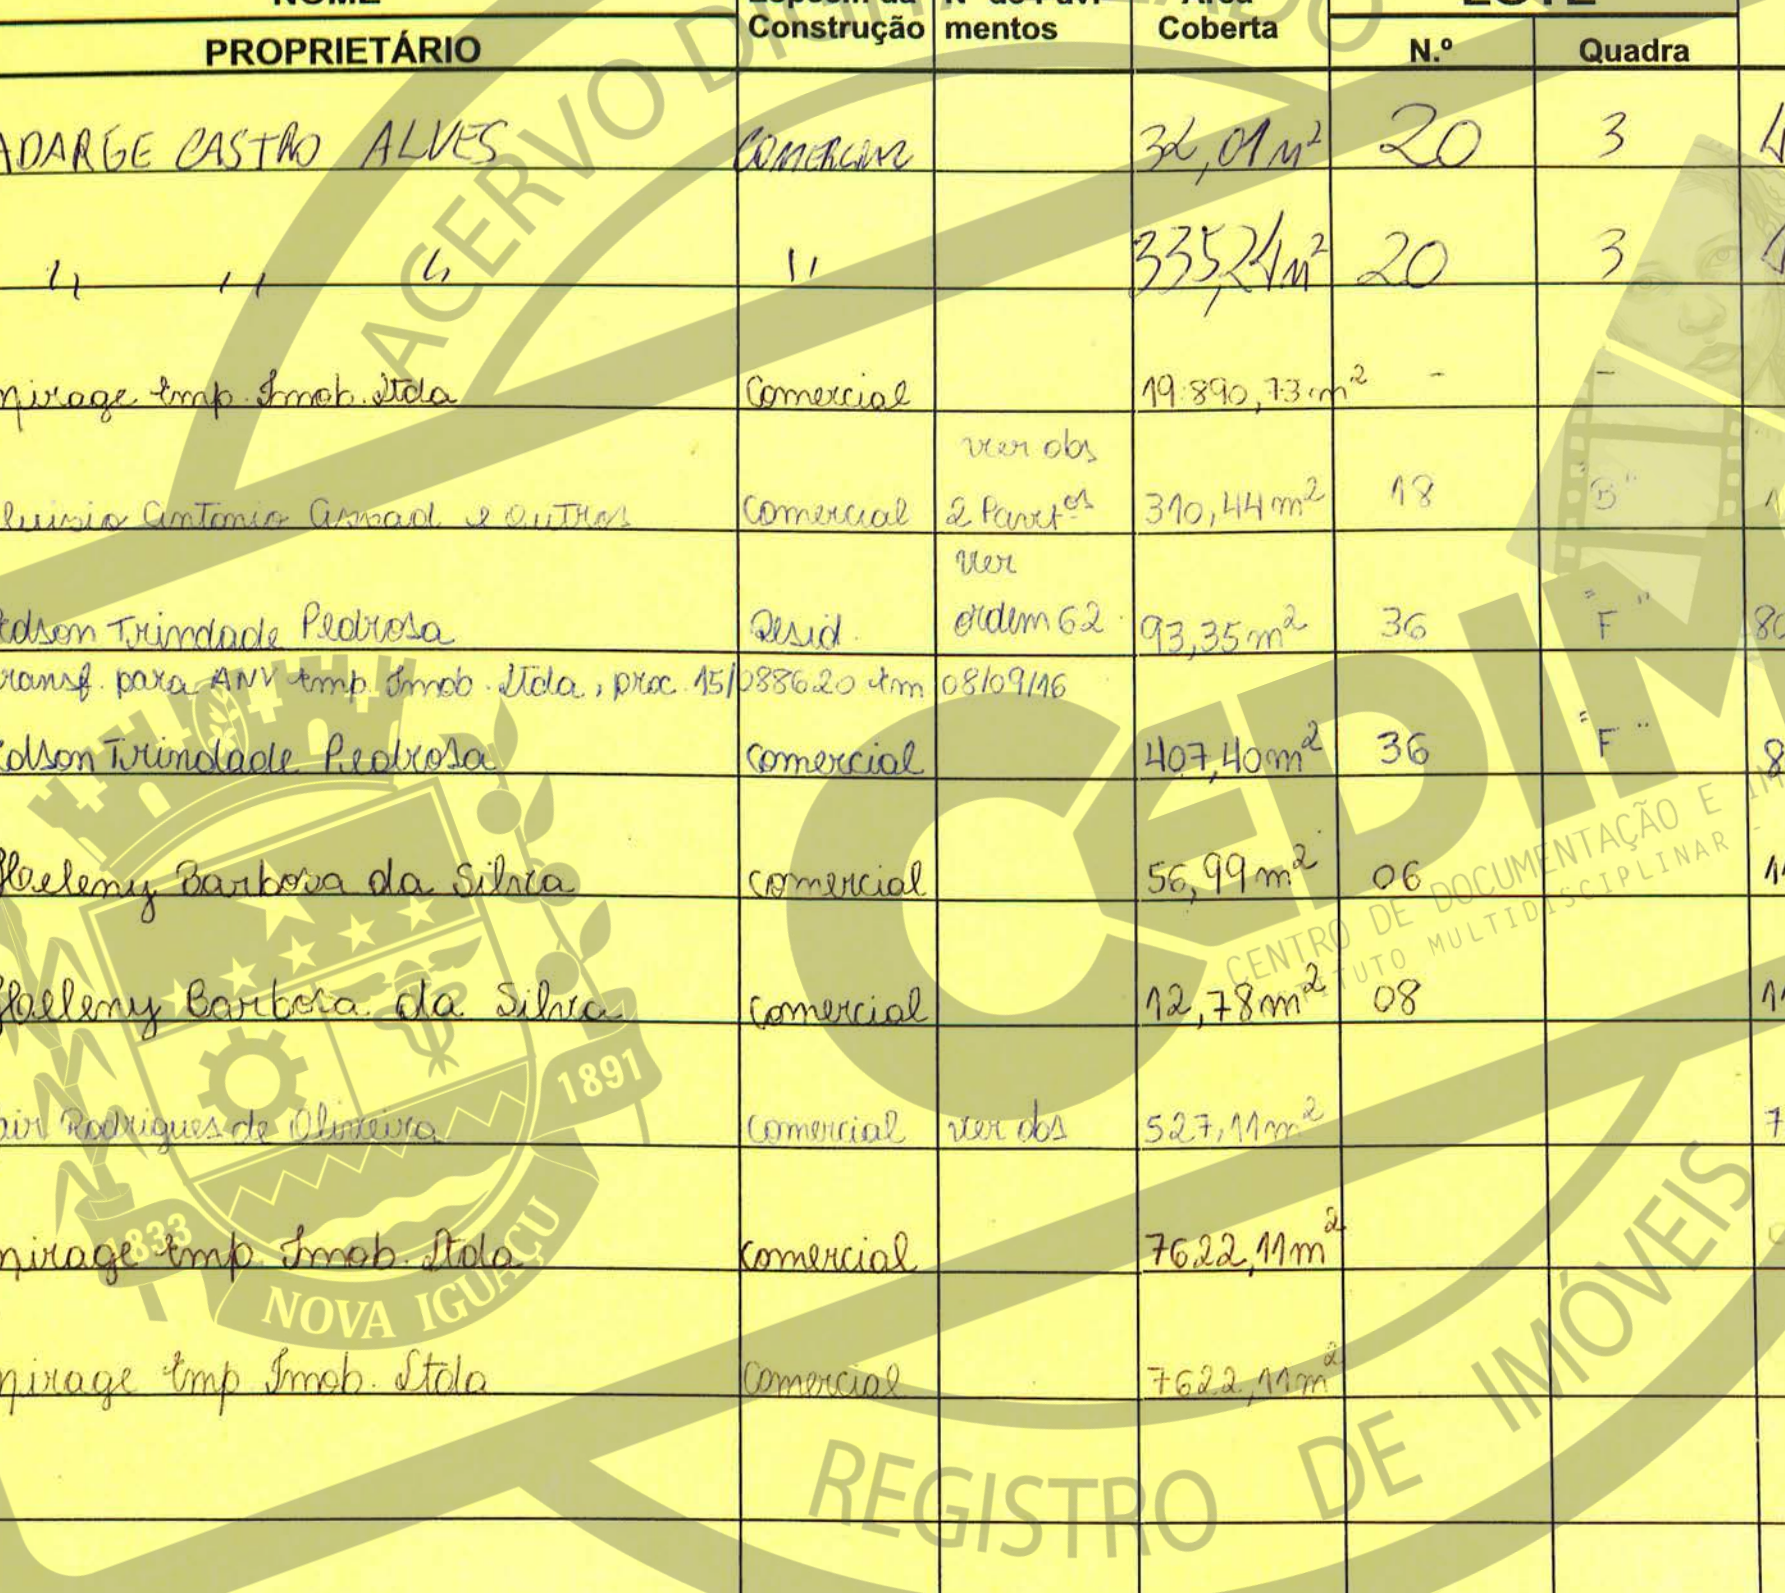 NOME
PROPRIETÁRIO
Construção
mentos
Área
Coberta
LOTE
N.º
Quadra
ADARGE CASTRO ALVES COMERCIAL 32,01 m² 20 3
" " " " 335,24 m² 20 3
mirage Emp. Imob. Ltda Comercial 19.890,73 m² - -
ver obs
Antonio Assad e outros Comercial 2 Pavtos 310,44 m² 18 "B"
ver
Edson Trindade Pedrosa Resid. ordem 62 93,35 m² 36 "F"
transf. para ANV Emp. Imob. Ltda, proc. 15/088620 em 08/09/16
Edson Trindade Pedrosa comercial 407,40 m² 36 "F" 8
Heleny Barbosa da Silva comercial 56,99 m² 06
Helleny Barbosa da Silva comercial 12,78 m² 08
air Rodrigues de Oliveira comercial ver obs 527,11 m² 7
mirage Emp Imob. Ltda comercial 7622,11 m²
mirage Emp Imob. Ltda comercial 7622,11 m²
ACERVO
CEDIM
CENTRO DE DOCUMENTAÇÃO E IM
TUTO MULTIDISCIPLINAR -
1891
1833
NOVA IGUAÇU
REGISTRO DE IMÓVEIS